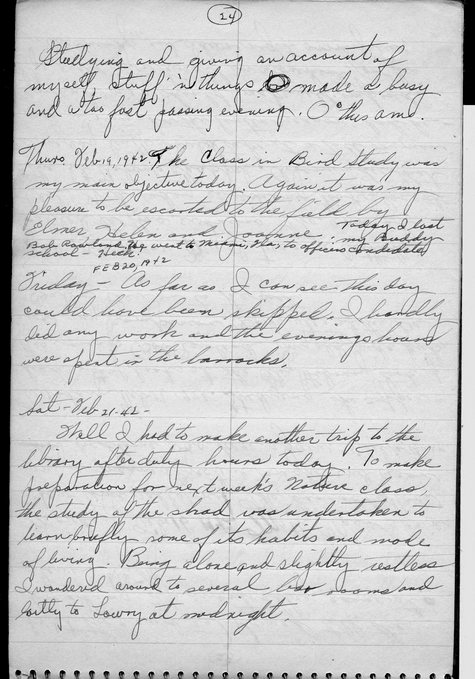 24
Studying and giving an account of
myself, stuff 'n things made a busy
and a too fast passing evening. 0° this am.
Thurs. Feb 19, 1942 The Class in Bird Study was
my main objective today. Again it was my
pleasure to be escorted to the field by
Elmer Helen and Joanne. Today I lost
my Buddy
Bob Rowland, he went to Miami, Fla, to officers candidate
school - Heck.
FEB 20, 1942
Friday - As far as I can see this day
could have been skipped. I hardly
did any work and the evenings hours
were spent in the barracks.
Sat - Feb 21 - 42 -
Well I had to make another trip to the
library after duty hours today. To make
preparation for next week's Nature class,
the study of the shad was undertaken to
learn briefly some of its habits and mode
of living. Being alone and slightly restless
I wandered around to several bar rooms and
to Lowry at midnight.